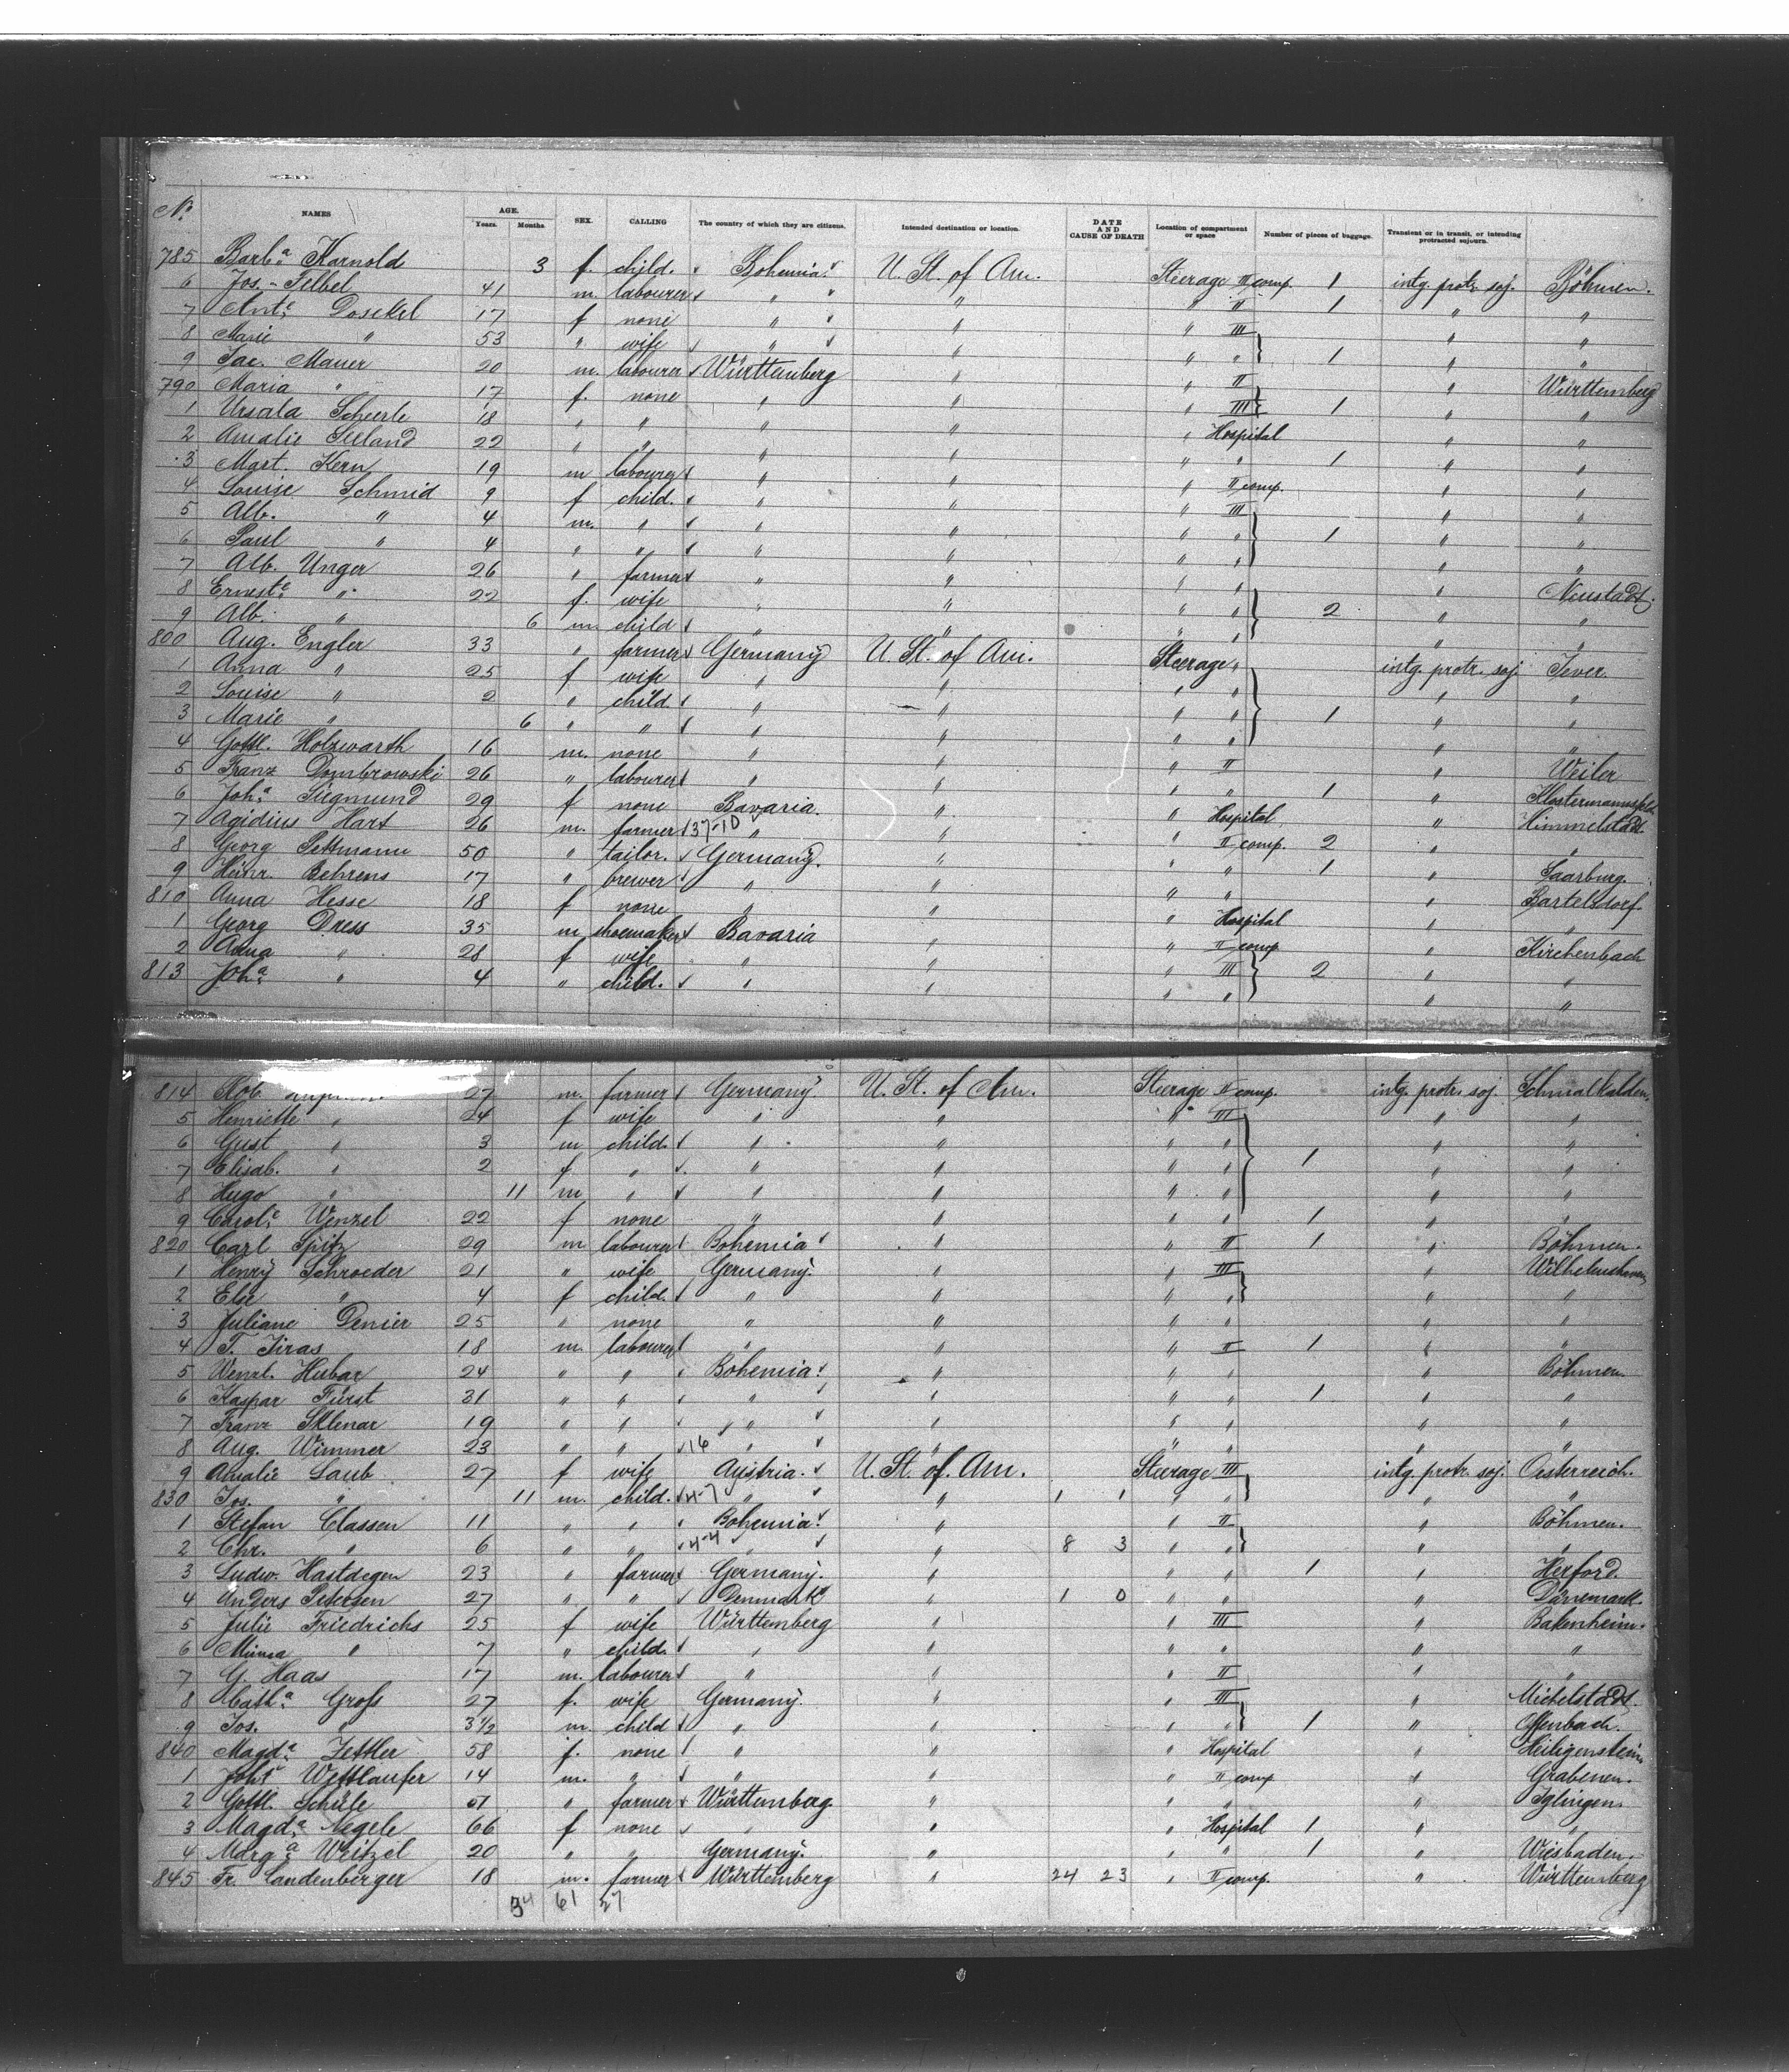 No. NAMES AGE. Years. Months. SEX. CALLING The country of which they are citizens. Intended destination or location. DATE AND CAUSE OF DEATH Location of compartment or space Number of pieces of baggage. Transient or in transit, or intending protracted sojourn.
785 Barba. Karnold 3 f. child. Bohemia U. St. of Am. Steerage III comp. 1 intg. protr. soj. Böhmen.
6 Jos. 41 m. labourer " " " " II 1 " "
7 Ante. Dosckel 17 f none " " " III " "
8 Marie " 53 " wife " " " " 1 " "
9 Jac. Mauer 20 m. labourer Württemberg " " II " Württemberg
790 Maria " 17 f. none " " " III 1 " "
1 Ursula Scheerle 18 " " " " " Hospital " "
2 Amalie Seeland 22 " " " " " " 1 " "
3 Mart. Kern 19 m labourer " " " II comp. " "
4 Louise Schmid 9 f child. " " " III " "
5 Alb. " 4 m. " " " " " 1 " "
6 Paul " 4 " " " " " " " "
7 Alb. Unger 26 " farmer " " " " " Neustadt.
8 Erneste. " 22 f. wife " " " " 2 " "
9 Alb. " 6 m. child " " " " " "
800 Aug. Engler 33 " farmer Germany U. St. of Am. Steerage " intg. protr. soj. Jever.
1 Anna " 25 f wife " " " " " "
2 Louise " 2 " child. " " " " 1 " "
3 Marie " 6 " " " " " " " "
4 Gottl. Holzwarth 16 m. none " " " II " Weiler
5 Franz Dombrowski 26 " labourer " " " " 1 " Klostermannsfeld
6 Joha. Siegmund 29 f none Bavaria. " " Hospital " Himmelstadt
7 Agidius Hart 26 m. farmer 37-10 " " " II comp. 2 " "
8 Georg Pettmann 50 " tailor. Germany. " " " 1 " Saarburg.
9 Heinr. Behrens 17 " brewer " " " " " Bartelsdorf
810 Anna Hesse 18 f none " " " Hospital " "
1 Georg Dress 35 m shoemaker Bavaria " " II comp " Kirchenbach
2 Anna " 28 f wife " " " III 2 " "
813 Joha. " 4 " child. " " " " " "
814 Rob. 27 m. farmer Germany. U. St. of Am. Steerage II comp. intg. protr. soj. Schmalkalden.
5 Henriette " 24 f wife " " " III " "
6 Gust " 3 m child. " " " " " "
7 Elisab. " 2 f " " " " " 1 " "
8 Hugo " 11 m " " " " " " "
9 Carole. Wenzel 22 f none " " " " 1 " "
820 Carl Spitz 29 m labourer Bohemia " " II 1 " Böhmen.
1 Henry Schroeder 21 " wife Germany. " " III " Wilhelmshaven
2 Else " 4 f child. " " " " " "
3 Juliane Denier 25 " none " " " " " "
4 F. Jiras 18 m. labourer " " " II 1 " "
5 Wenzl. Hubar 24 " " Bohemia. " " " " Böhmen.
6 Kaspar Fürst 31 " " " " " " 1 " "
7 Franz Sklenar 19 " " " " " " " "
8 Aug. Wimmer 23 " " 16 " " " " " "
9 Amalie Laub 27 f wife Austria. U. St. of. Am. Steerage III intg. protr. soj. Oesterreich.
830 Jos. " 11 m. child. 4-7 " " 1 1 " " " "
1 Stefan Classen 11 " " Bohemia. " " II " Böhmen.
2 Chr. " 6 " " 4-4 " " 8 3 " " " "
3 Ludw. Hastdegen 23 " farmer Germany. " " " 1 " Herford.
4 Anders Petersen 27 " " Denmark " 1 0 " " " Dänemark.
5 Julie Friedrichs 25 f wife Württemberg " " III " Bakenheim.
6 Minna " 7 " child. " " " " " "
7 G. Haas 17 m. labourer " " " II " "
8 Catha. Gross 27 f. wife Germany. " " III " Michelstadt.
9 Jos. " 3½ m. child " " " " 1 " Offenbach.
840 Magda. Zettler 58 f. none " " " Hospital " Heiligenstein
1 Joht. Wettlaufer 14 m. " " " " II comp " Grabenen.
2 Gottl. Schüle 51 " farmer Württemberg. " " " " Iglingen.
3 Magda. Negele 66 f none " " " Hospital 1 " "
4 Marga. Weitzel 20 " " Germany. " " " 1 " Wiesbaden.
845 Fr. Landenberger 18 m. farmer Württemberg " 24 23 " II comp. " Württemberg
34 61 27